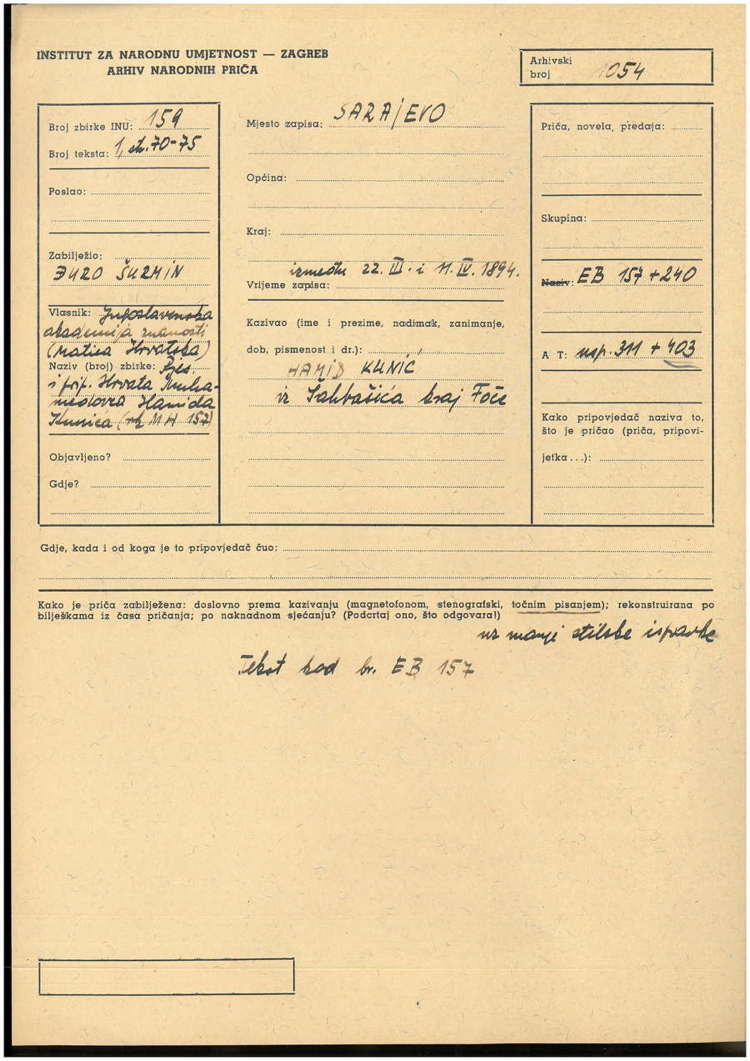 INSTITUT ZA NARODNU UMJETNOST — ZAGREB
ARHIV NARODNIH PRIČA
Arhivski
broj 1054
Broj zbirke INU: 159
Broj teksta: 1, str. 70-75
Poslao:
Zabilježio:
ĐURO ŠURMIN
Vlasnik: Jugoslavenska
akademija znanosti
(Matica Hrvatska)
Naziv (broj) zbirke: Pjes
i prip. Hrvata Muha-
medovca Hamida
Kunića (rk MH 157)
Objavljeno?
Gdje?
Mjesto zapisa: SARAJEVO
Općina:
Kraj:
između 22. III. i 11. IV. 1894.
Vrijeme zapisa:
Kazivao (ime i prezime, nadimak, zanimanje,
dob, pismenost i dr.):
HAMID KUNIĆ
iz Šahbašića kraj Foče
Priča, novela, predaja:
Skupina:
Naziv: EB 157 + 240
A T: usp. 311 + 403
Kako pripovjedač naziva to,
što je pričao (priča, pripovi-
jetka...):
Gdje, kada i od koga je to pripovjedač čuo:
Kako je priča zabilježena: doslovno prema kazivanju (magnetofonom, stenografski, točnim pisanjem); rekonstruirana po
bilješkama iz časa pričanja; po naknadnom sjećanju? (Podcrtaj ono, što odgovara!)
uz manje stilske ispravke
Tekst kod br. EB 157